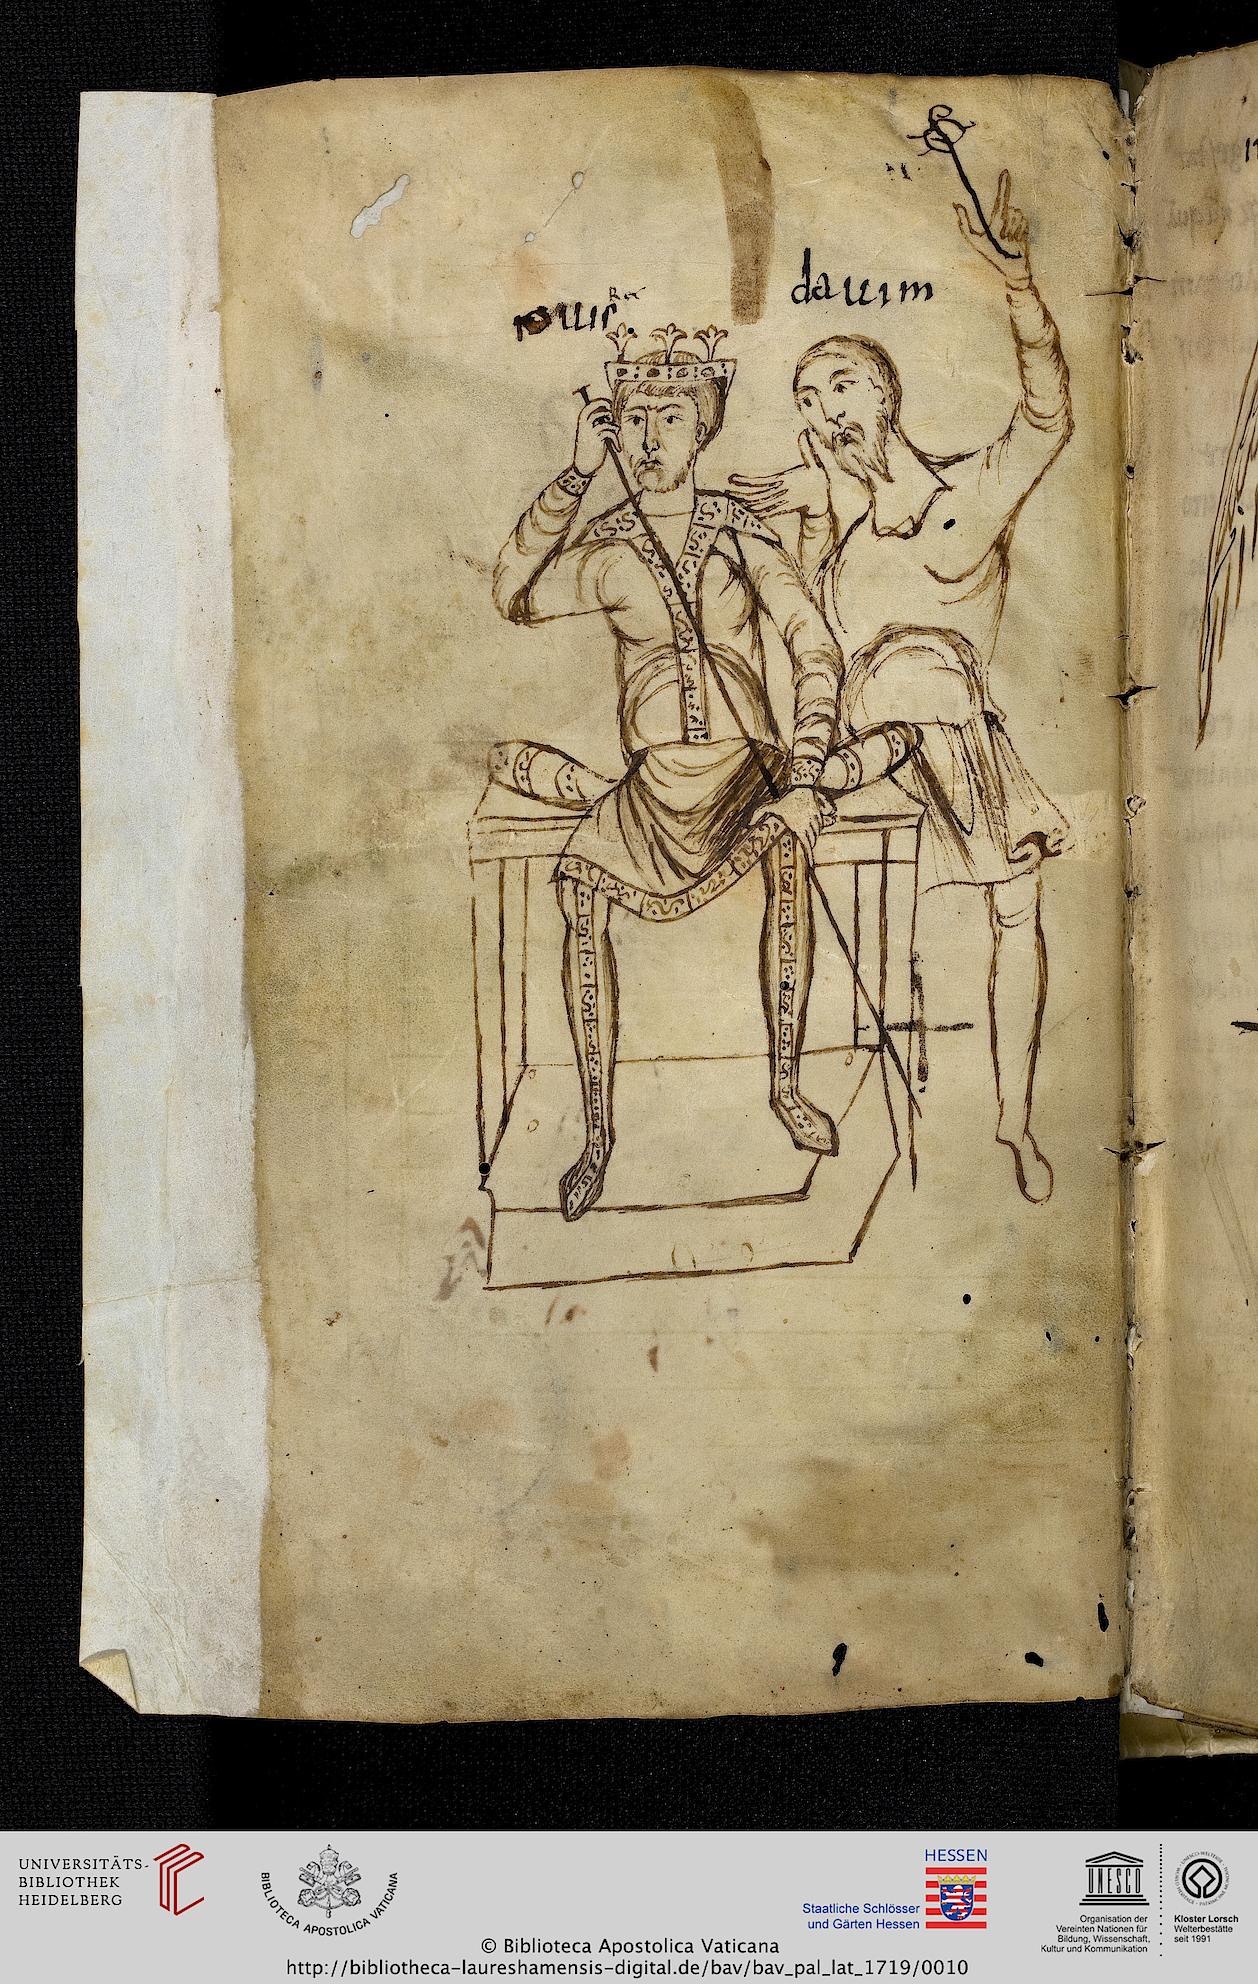 Rex
iouis
dauim
UNIVERSITÄTS-
BIBLIOTHEK
HEIDELBERG
BIBLIOTECA APOSTOLICA VATICANA
HESSEN
Staatliche Schlösser
und Gärten Hessen
UNESCO
Organisation der
Vereinten Nationen für
Bildung, Wissenschaft,
Kultur und Kommunikation
Kloster Lorsch
Welterbestätte
seit 1991
© Biblioteca Apostolica Vaticana
http://bibliotheca-laureshamensis-digital.de/bav/bav_pal_lat_1719/0010